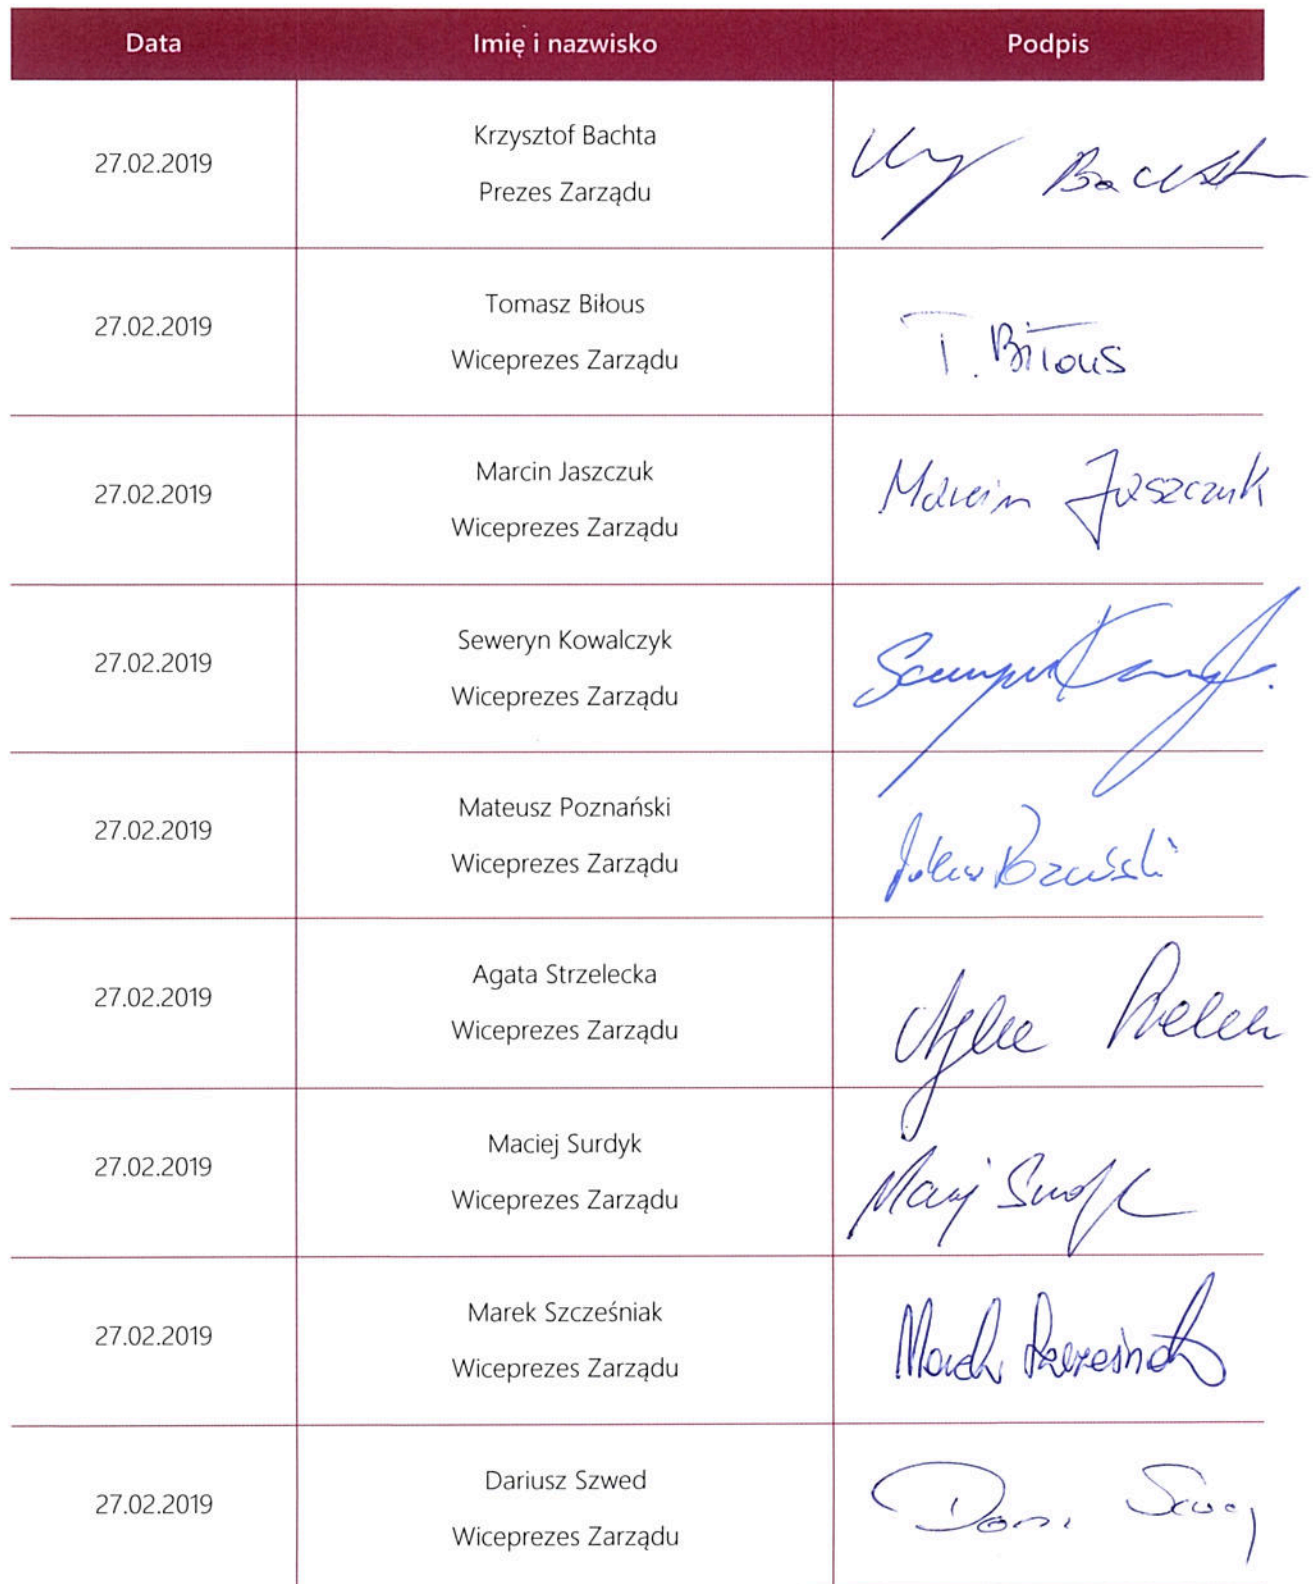 Data Imię i nazwisko Podpis
27.02.2019
Krzysztof Bachta
Prezes Zarządu
27.02.2019
Tomasz Biłous
Wiceprezes Zarządu
T. Biłous
27.02.2019
Marcin Jaszczuk
Wiceprezes Zarządu
Marcin Jaszczuk
27.02.2019
Seweryn Kowalczyk
Wiceprezes Zarządu
27.02.2019
Mateusz Poznański
Wiceprezes Zarządu
27.02.2019
Agata Strzelecka
Wiceprezes Zarządu
27.02.2019
Maciej Surdyk
Wiceprezes Zarządu
27.02.2019
Marek Szcześniak
Wiceprezes Zarządu
Marek Szcześniak
27.02.2019
Dariusz Szwed
Wiceprezes Zarządu